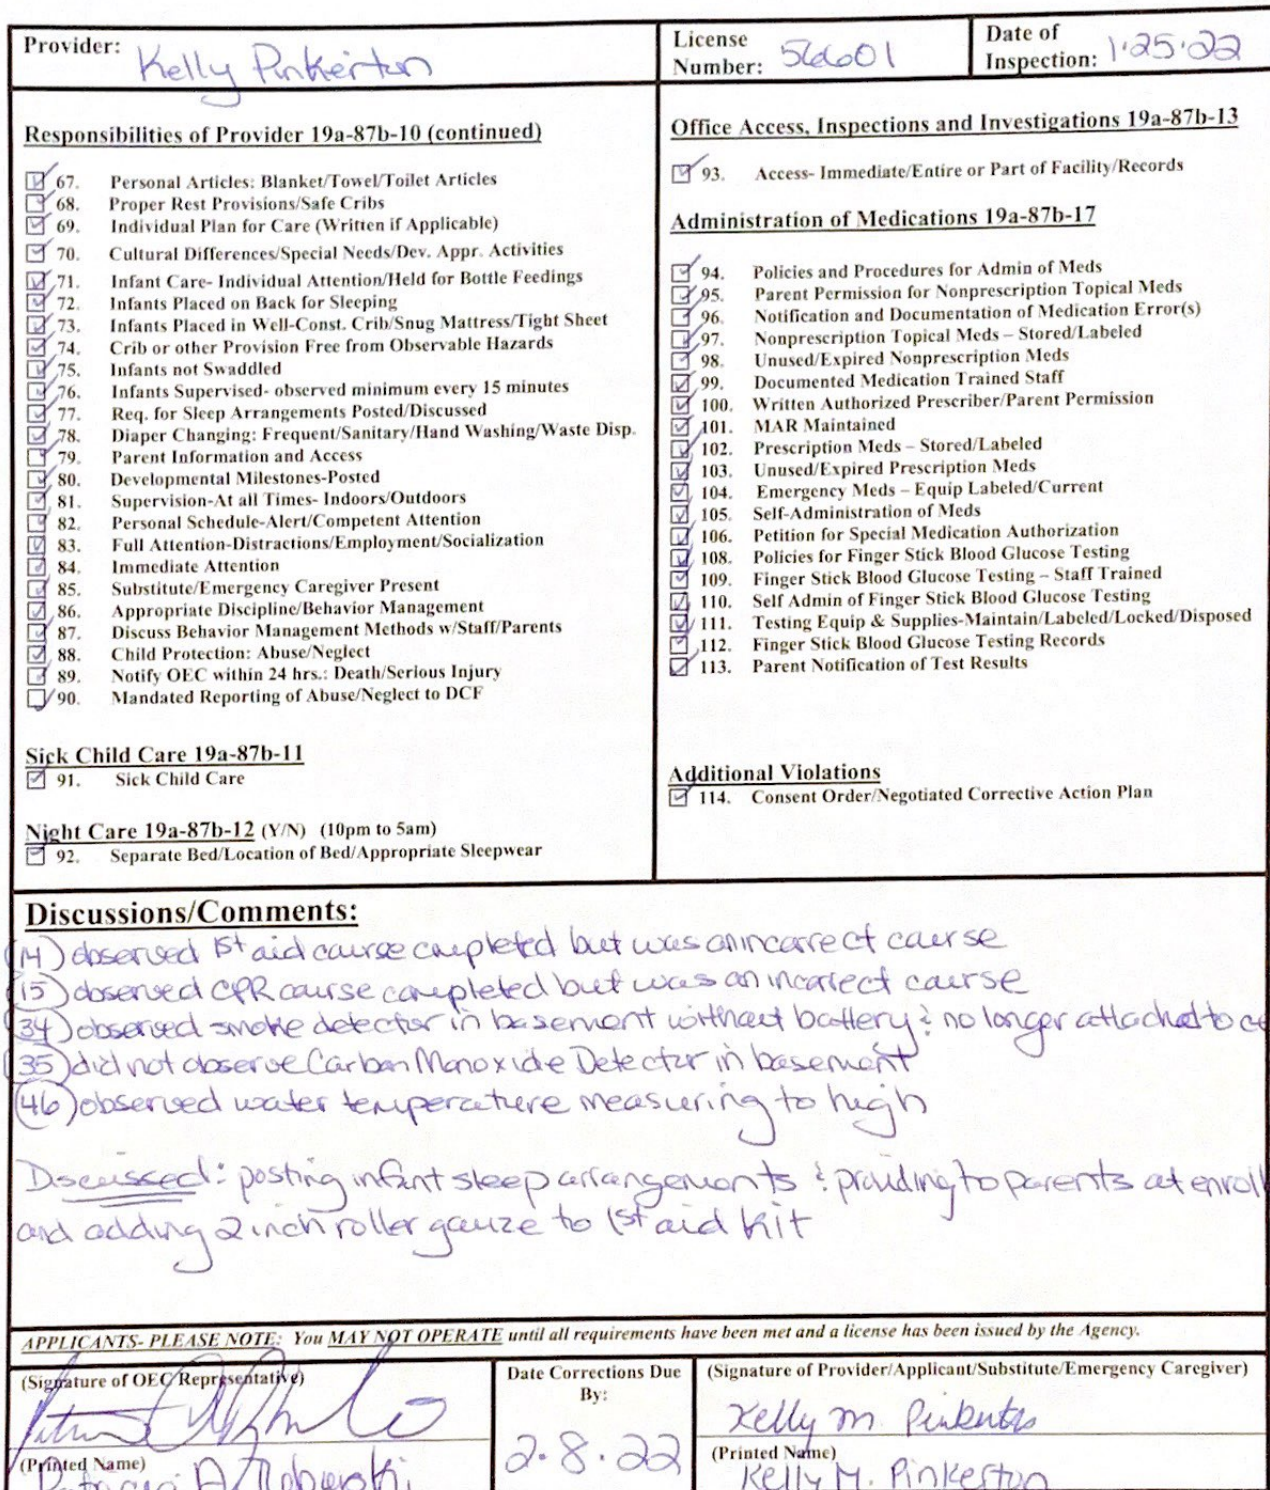 Provider: Kelly Pinkerton
License Number: 56601
Date of Inspection: 1·25·22
Responsibilities of Provider 19a-87b-10 (continued)
67. Personal Articles: Blanket/Towel/Toilet Articles
68. Proper Rest Provisions/Safe Cribs
69. Individual Plan for Care (Written if Applicable)
70. Cultural Differences/Special Needs/Dev. Appr. Activities
71. Infant Care- Individual Attention/Held for Bottle Feedings
72. Infants Placed on Back for Sleeping
73. Infants Placed in Well-Const. Crib/Snug Mattress/Tight Sheet
74. Crib or other Provision Free from Observable Hazards
75. Infants not Swaddled
76. Infants Supervised- observed minimum every 15 minutes
77. Req. for Sleep Arrangements Posted/Discussed
78. Diaper Changing: Frequent/Sanitary/Hand Washing/Waste Disp.
79. Parent Information and Access
80. Developmental Milestones-Posted
81. Supervision-At all Times- Indoors/Outdoors
82. Personal Schedule-Alert/Competent Attention
83. Full Attention-Distractions/Employment/Socialization
84. Immediate Attention
85. Substitute/Emergency Caregiver Present
86. Appropriate Discipline/Behavior Management
87. Discuss Behavior Management Methods w/Staff/Parents
88. Child Protection: Abuse/Neglect
89. Notify OEC within 24 hrs.: Death/Serious Injury
90. Mandated Reporting of Abuse/Neglect to DCF
Sick Child Care 19a-87b-11
91. Sick Child Care
Night Care 19a-87b-12 (Y/N) (10pm to 5am)
92. Separate Bed/Location of Bed/Appropriate Sleepwear
Office Access, Inspections and Investigations 19a-87b-13
93. Access- Immediate/Entire or Part of Facility/Records
Administration of Medications 19a-87b-17
94. Policies and Procedures for Admin of Meds
95. Parent Permission for Nonprescription Topical Meds
96. Notification and Documentation of Medication Error(s)
97. Nonprescription Topical Meds – Stored/Labeled
98. Unused/Expired Nonprescription Meds
99. Documented Medication Trained Staff
100. Written Authorized Prescriber/Parent Permission
101. MAR Maintained
102. Prescription Meds – Stored/Labeled
103. Unused/Expired Prescription Meds
104. Emergency Meds – Equip Labeled/Current
105. Self-Administration of Meds
106. Petition for Special Medication Authorization
108. Policies for Finger Stick Blood Glucose Testing
109. Finger Stick Blood Glucose Testing – Staff Trained
110. Self Admin of Finger Stick Blood Glucose Testing
111. Testing Equip & Supplies-Maintain/Labeled/Locked/Disposed
112. Finger Stick Blood Glucose Testing Records
113. Parent Notification of Test Results
Additional Violations
114. Consent Order/Negotiated Corrective Action Plan
Discussions/Comments:
(14) observed 1st aid course completed but was an incorrect course
(15) observed CPR course completed but was an incorrect course
(34) observed smoke detector in basement without battery & no longer attached to ce
(35) did not observe Carbon Monoxide Detector in basement
(46) observed water temperature measuring to high
Discussed: posting infant sleep arrangements & providing to parents at enroll
and adding 2 inch roller gauze to 1st aid kit
APPLICANTS- PLEASE NOTE: You MAY NOT OPERATE until all requirements have been met and a license has been issued by the Agency.
(Signature of OEC Representative)
(Printed Name)
Date Corrections Due By:
2·8·22
(Signature of Provider/Applicant/Substitute/Emergency Caregiver)
Kelly M. Pinkerton
(Printed Name)
Kelly M. Pinkerton